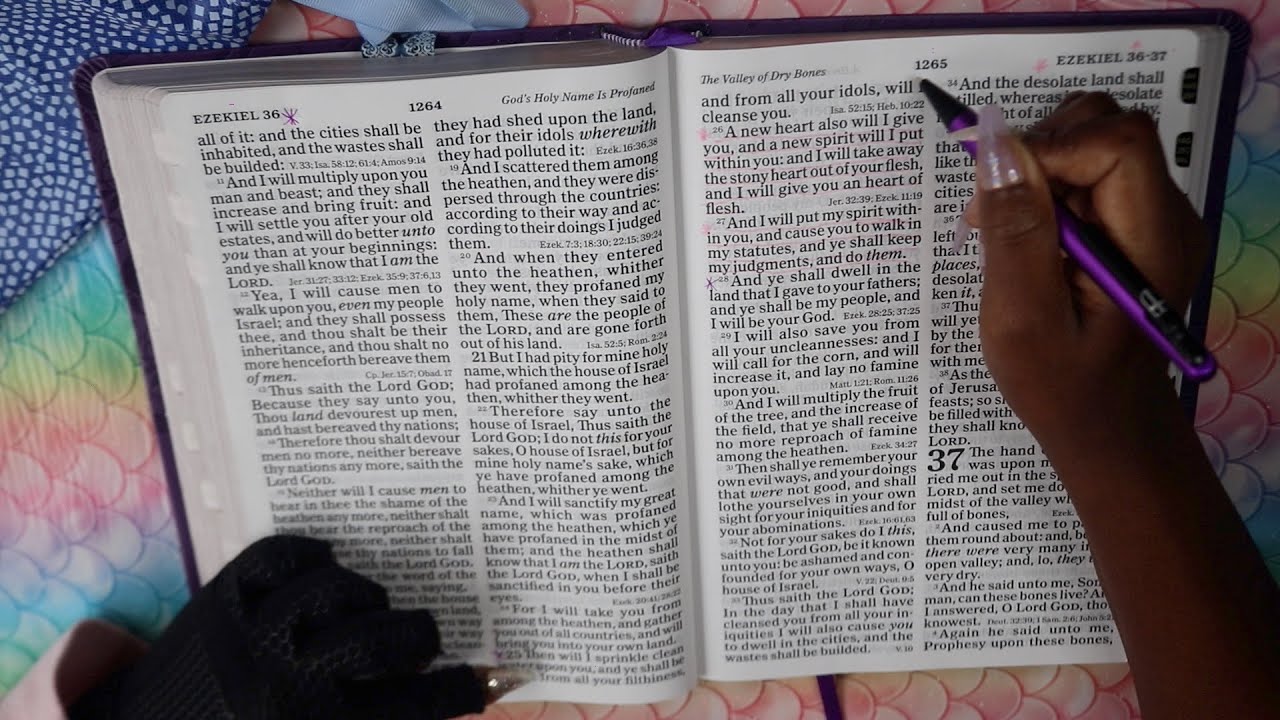 EZEKIEL 36
1264
God's Holy Name Is Profaned
all of it: and the cities shall be
inhabited, and the wastes shall
be builded: V. 33; Isa. 58:12; 61:4; Amos 9:14
11 And I will multiply upon you
man and beast; and they shall
increase and bring fruit: and
I will settle you after your old
estates, and will do better unto
you than at your beginnings:
and ye shall know that I am the
LORD. Jer. 31:27; 33:12; Ezek. 35:9; 37:6,13
12 Yea, I will cause men to
walk upon you, even my people
Israel; and they shall possess
thee, and thou shalt be their
inheritance, and thou shalt no
more henceforth bereave them
of men. Cp. Jer. 15:7; Obad. 17
13 Thus saith the Lord GOD;
Because they say unto you,
Thou land devourest up men,
and hast bereaved thy nations;
14 Therefore thou shalt devour
men no more, neither bereave
thy nations any more, saith the
Lord GOD.
15 Neither will I cause men to
hear in thee the shame of the
heathen any more, neither shalt
thou bear the reproach of the
more, neither shalt
thy nations to fall
saith the Lord GOD.
the word of the
me, saying,
when the house
own land,
own way
they had shed upon the land,
and for their idols wherewith
they had polluted it: Ezek. 16:36,38
19 And I scattered them among
the heathen, and they were dis-
persed through the countries:
according to their way and ac-
cording to their doings I judged
them. Ezek. 7:3; 18:30; 22:15; 39:24
20 And when they entered
unto the heathen, whither
they went, they profaned my
holy name, when they said to
them, These are the people of
the LORD, and are gone forth
out of his land. Isa. 52:5; Rom. 2:24
21 But I had pity for mine holy
name, which the house of Israel
had profaned among the hea-
then, whither they went.
22 Therefore say unto the
house of Israel, Thus saith the
Lord GOD; I do not this for your
sakes, O house of Israel, but for
mine holy name's sake, which
ye have profaned among the
heathen, whither ye went.
23 And I will sanctify my great
name, which was profaned
among the heathen, which ye
have profaned in the midst of
them; and the heathen shall
know that I am the LORD, saith
the Lord GOD, when I shall be
sanctified in you before their
eyes. Ezek. 20:41; 28:22
24 For I will take you from
among the heathen, and gather
you out of all countries, and will
bring you into your own land.
25 Then will I sprinkle clean
water upon you, and ye shall be
from all your filthiness,
The Valley of Dry Bones
1265
EZEKIEL 36-37
and from all your idols, will
cleanse you. Isa. 52:15; Heb. 10:22
26 A new heart also will I give
you, and a new spirit will I put
within you: and I will take away
the stony heart out of your flesh,
and I will give you an heart of
flesh. Jer. 32:39; Ezek. 11:19
27 And I will put my spirit with-
in you, and cause you to walk in
my statutes, and ye shall keep
my judgments, and do them.
28 And ye shall dwell in the
land that I gave to your fathers;
and ye shall be my people, and
I will be your God. Ezek. 28:25; 37:25
29 I will also save you from
all your uncleannesses: and I
will call for the corn, and will
increase it, and lay no famine
upon you. Matt. 1:21; Rom. 11:26
30 And I will multiply the fruit
of the tree, and the increase of
the field, that ye shall receive
no more reproach of famine
among the heathen. Ezek. 34:27
31 Then shall ye remember your
own evil ways, and your doings
that were not good, and shall
lothe yourselves in your own
sight for your iniquities and for
your abominations. Ezek. 16:61,63
32 Not for your sakes do I this,
saith the Lord GOD, be it known
unto you: be ashamed and con-
founded for your own ways, O
house of Israel. V. 22; Deut. 9:5
33 Thus saith the Lord GOD;
In the day that I shall have
cleansed you from all your in-
iquities I will also cause you
to dwell in the cities, and the
wastes shall be builded. V. 10
34 And the desolate land shall
tilled, whereas desolate
ght of all by.
that
like th
waste
cities
are i
36
left
places,
desolat
ken it,
37 Thu
will yet
by the
for the
with me
38 As the
of Jerusa
feasts; so s
be filled with
they shall kno
LORD.
37 The hand
was upon m
ried me out in the sp
LORD, and set me do
midst of the valley wh
full of bones,
2 And caused me to pa
them round about: and, be
there were very many in
open valley; and, lo, they
very dry.
3 And he said unto me, Son
man, can these bones live? A
I answered, O Lord GOD, tho
knowest. Deut. 32:39; I Sam. 2:6; John 5:2
4 Again he said unto me,
Prophesy upon these bones,